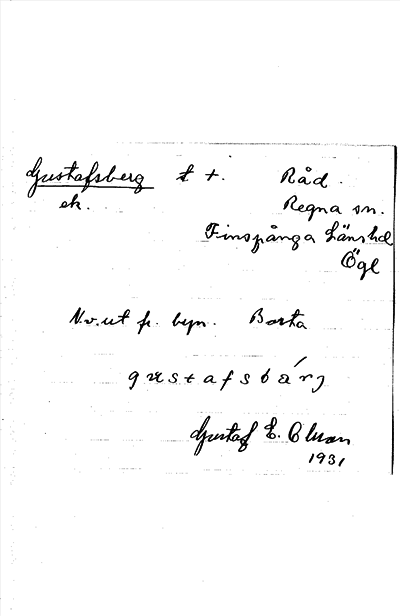 Gustafsberg t +. Råd.
ek. Regna sn.
Finspånga Länshd
Ögl
N.v.ut fr. byn. Borta
gustafsbárj
Gustaf E. Olson
1931